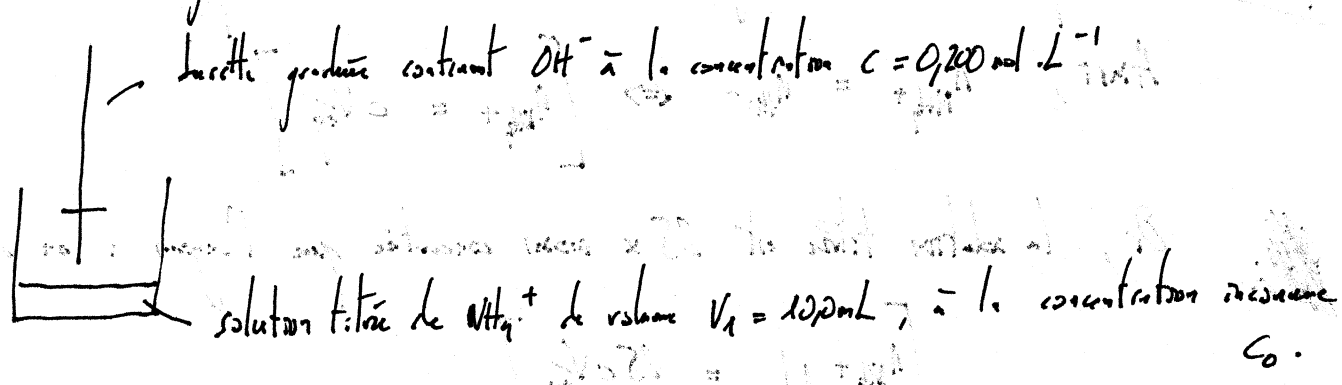 burette graduée contenant OH⁻ à la concentration C = 0,200 mol.L⁻¹
solution titrée de NH₄⁺ de volume V₁ = 10,0mL, à la concentration inconnue
C₀.